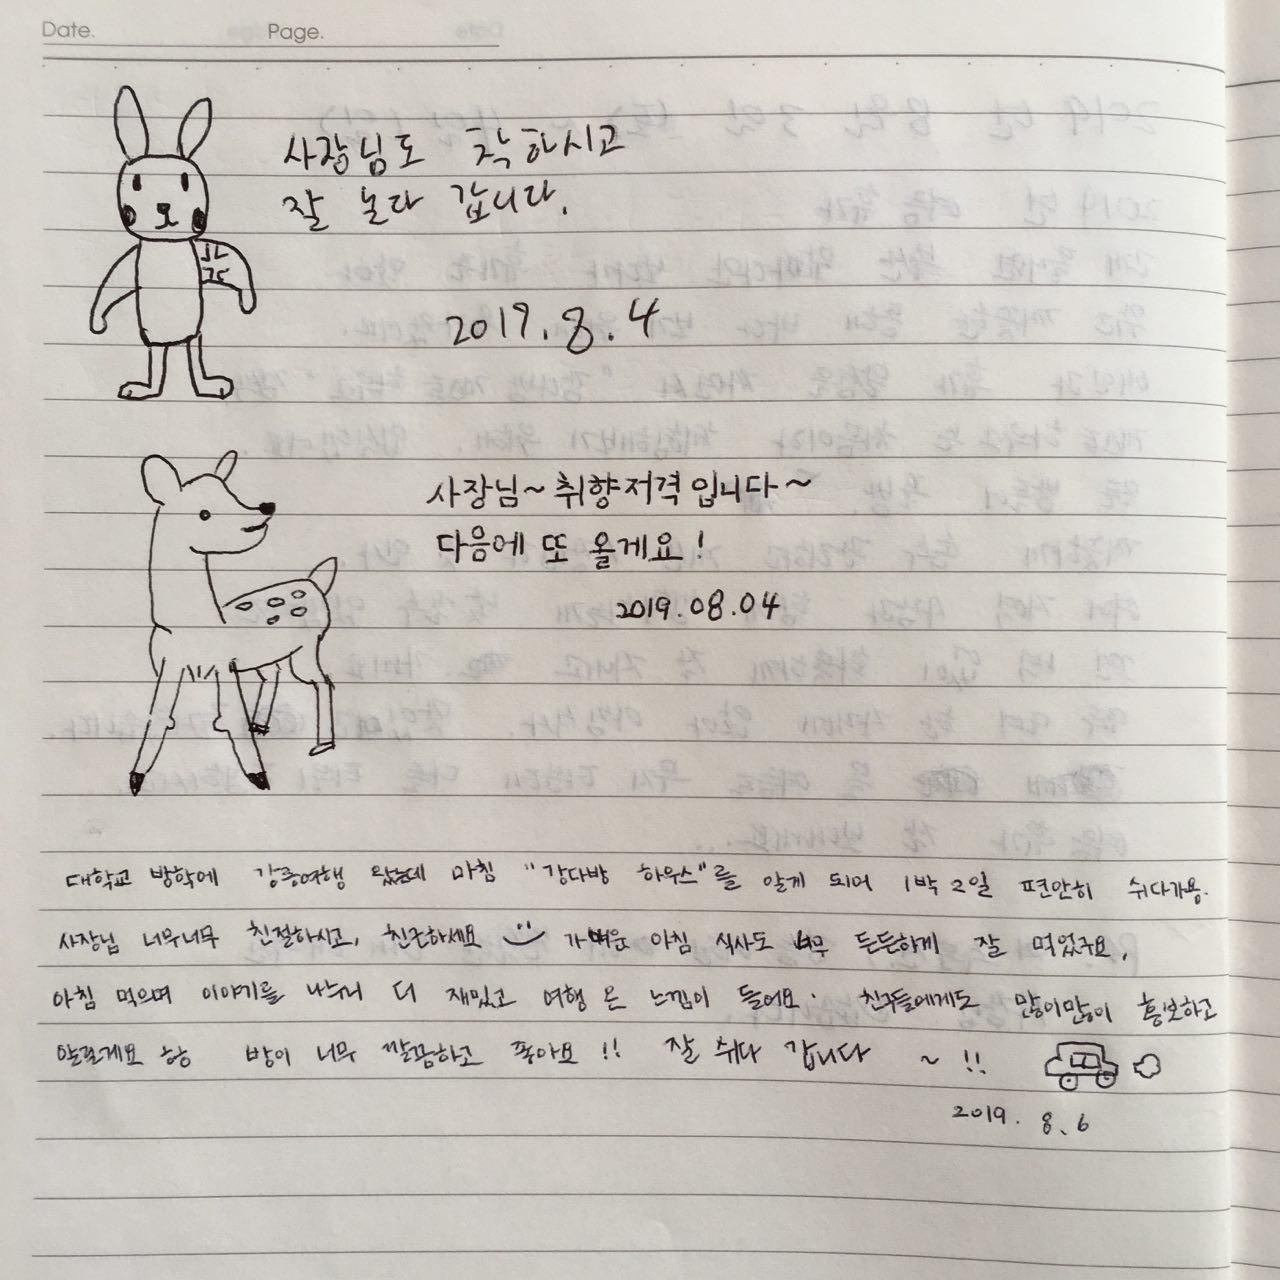 Date. Page.
사장님도 착하시고
잘 놀다 갑니다.
2019. 8. 4
사장님~ 취향저격입니다~
다음에 또 올게요!
2019.08.04
대학교 방학에 강릉여행 왔는데 마침 "강다방 하우스"를 알게 되며 1박 2일 편안히 쉬다가용.
사장님 너무너무 친절하시고, 친근하세요 가벼운 아침 식사도 너무 든든하게 잘 먹었구요,
아침 먹으며 이야기를 나누니 더 재밌고 여행 온 느낌이 들어요. 친구들에게도 많이많이 홍보하고
알릴게요 방이 너무 깔끔하고 좋아요 !! 잘 쉬다 갑니다 ~ !!
2019. 8. 6